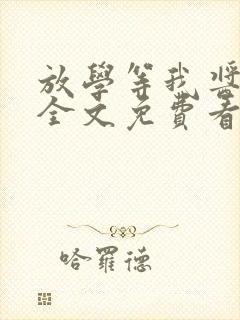 放學等我 醬
全文免費看
哈羅德